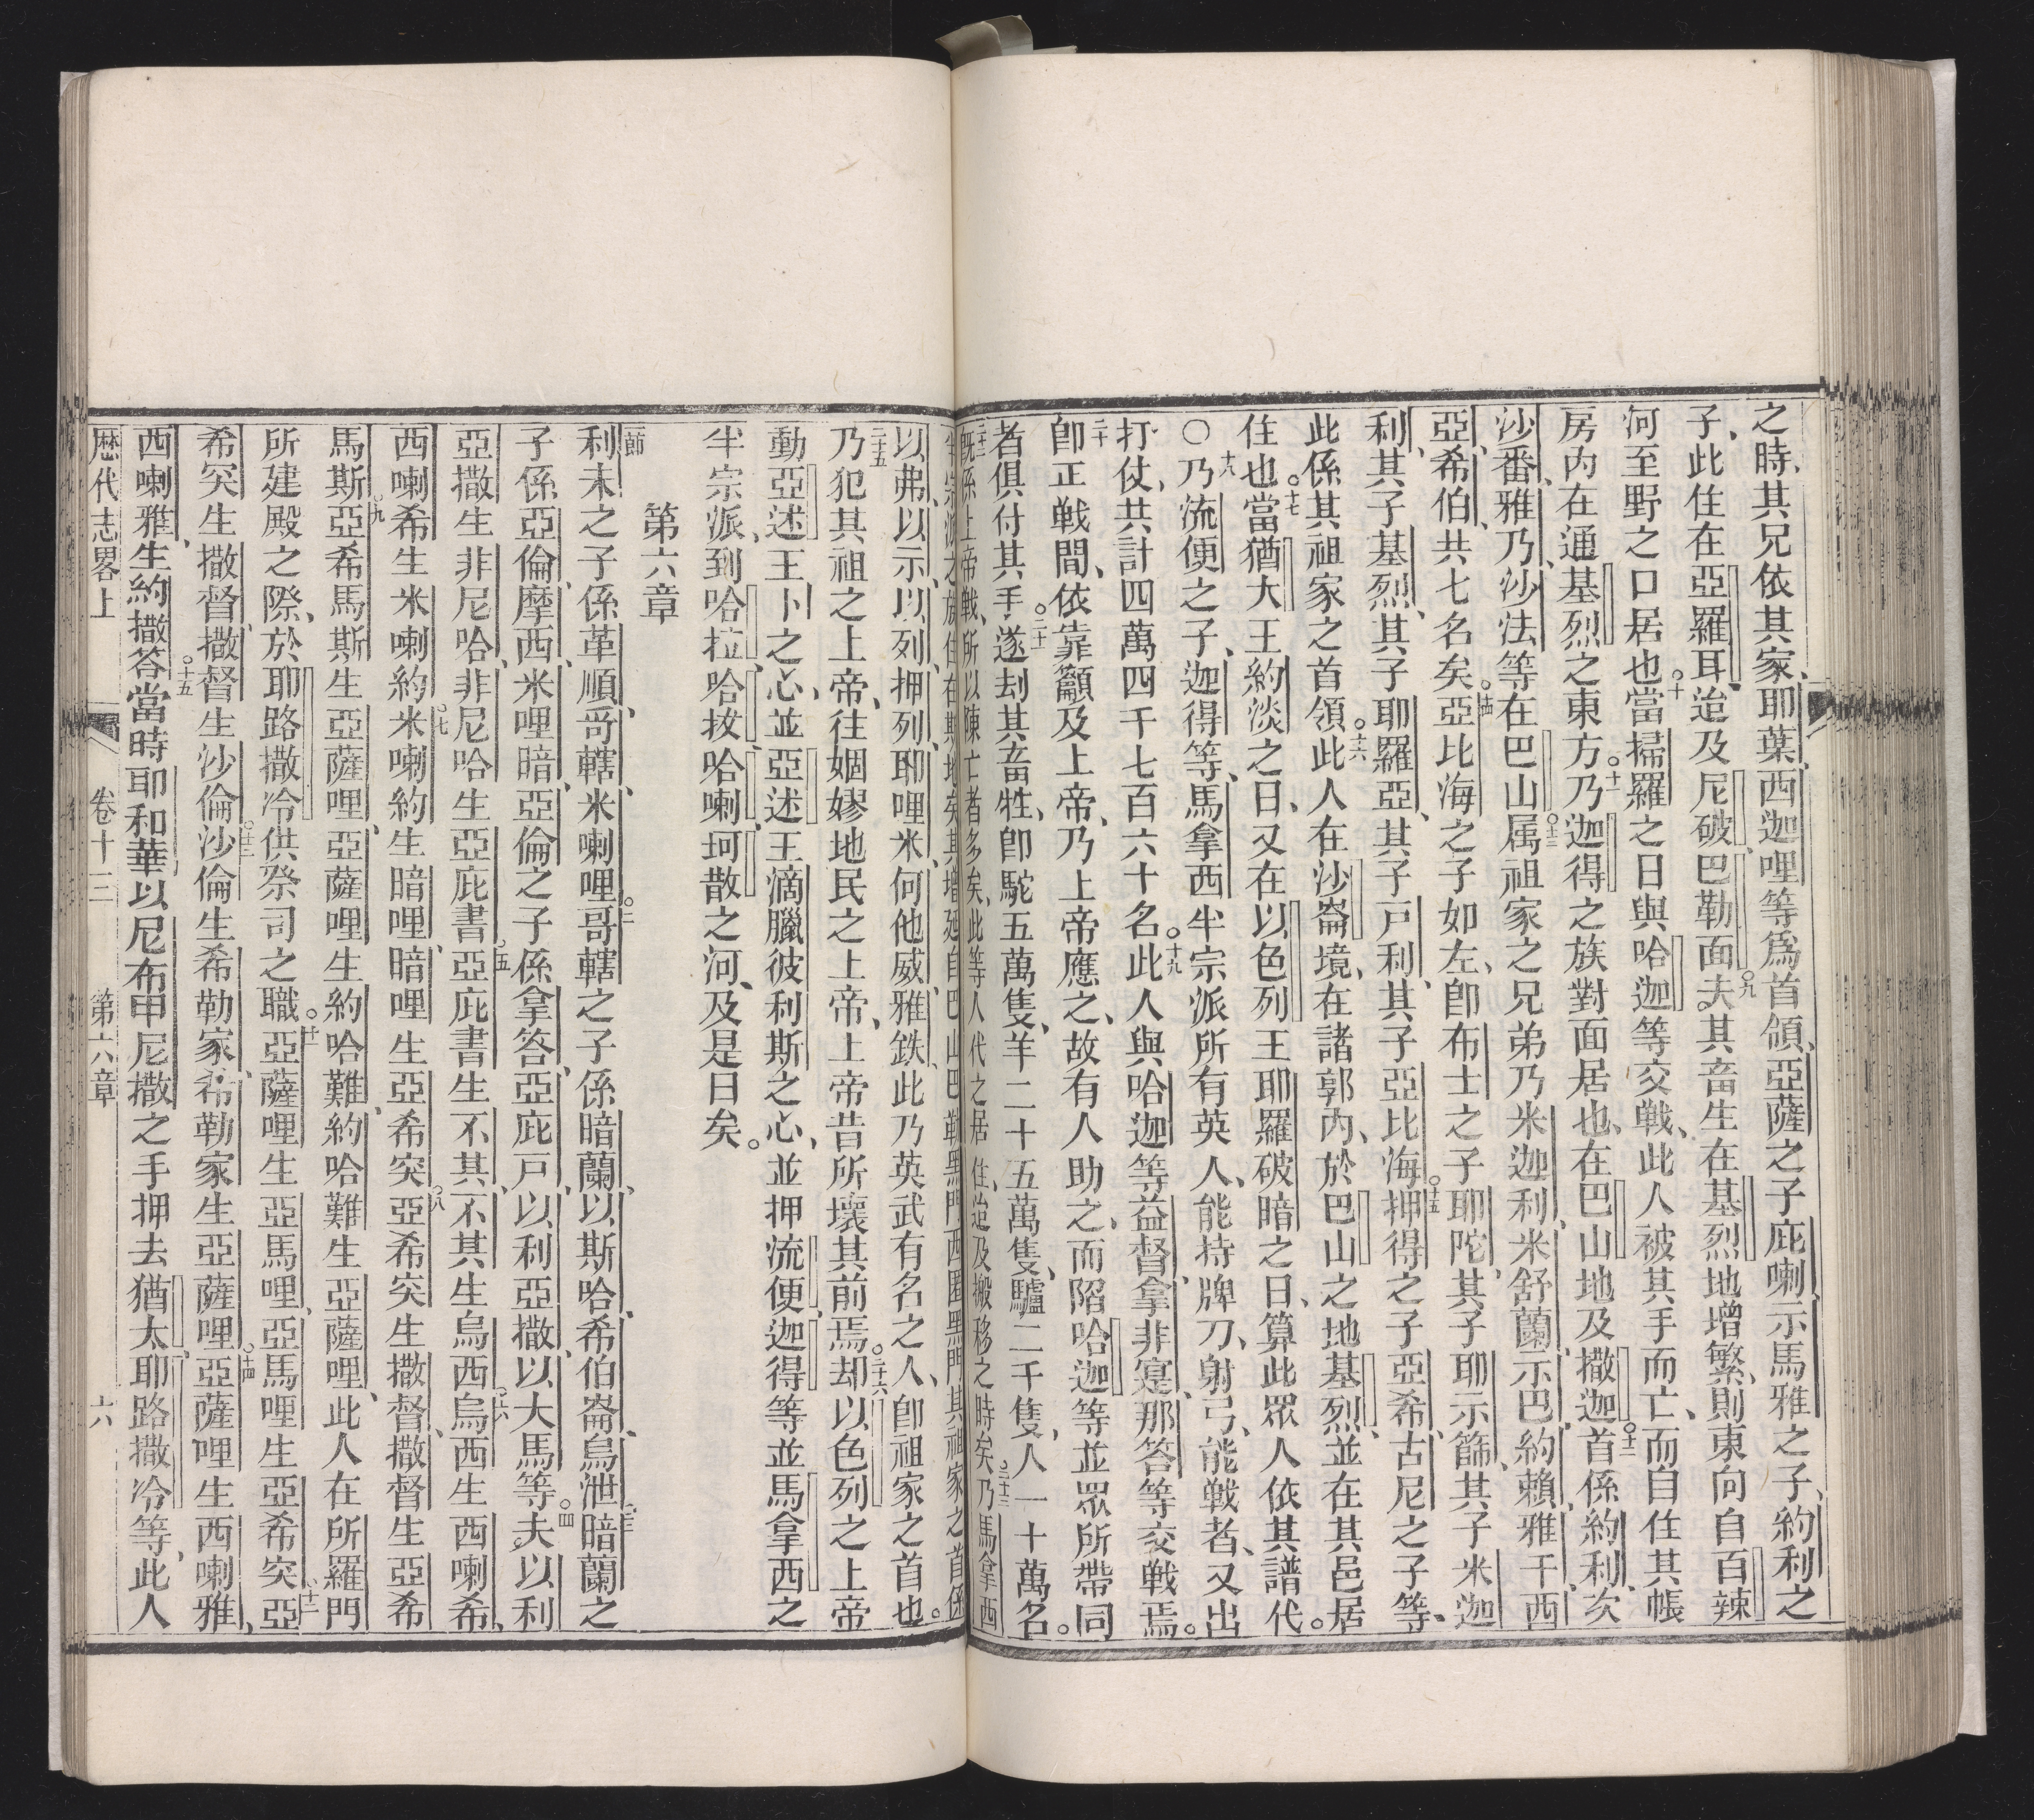 之時、其兄依其家、耶葉、西迦哩等為首領、亞薩之子庇喇、示馬雅之子、約利之
子、此住在亞羅耳、迨及尼破、巴勒面夫。○九其畜生在基烈地增繁、則東向自百辣
河至野之口居也。○十當掃羅之日與哈迦等交戰、此人被其手而亡、而自住其帳
房內在通基烈之東方。○十一乃迦得之族對面居也、在巴山地及撒迦。○十二首係約利、次
沙番、雅乃、沙法等在巴山。○十三属祖家之兄弟乃米迦利、米舒蘭、示巴、約賴、雅干、西
亞、希伯、共七名矣。○十四亞比海之子如左、卽布士之子耶陀、其子耶示篩、其子米迦
利、其子基烈、其子耶羅亞、其子戶利、其子亞比海。○十五押得之子亞希、古尼之子等、
此係其祖家之首領。○十六此人在沙崙境、在諸郭內、於巴山之地基烈、並在其邑居
住也。○十七當猶大王約淡之日、又在以色列王耶羅破暗之日、算此眾人依其譜代。
○十八乃流便之子、迦得等、馬拿西半宗派所有英人、能持牌刀、射弓、能戰者、又出
打仗、共計四萬四千七百六十名。○十九此人與哈迦等益督、拿非寔、那答等交戰焉。
二十卽正戰間、依靠籲及上帝、乃上帝應之、故有人助之、而陷哈迦等並眾所帶同
者俱付其手。○二十一遂刦其畜牲、卽駝五萬隻、羊二十五萬隻、驢二千隻、人一十萬名。
二十二既係上帝戰、所以陳亡者多矣、此等人代之居住、迨及搬移之時矣。○二十三乃馬拿西
半宗派之族住在斯地矣其增廻自巴山巴勒黑門西圖黑門其祖家之首係
以弗、以示、以列、押列、耶哩米、何他威、雅鉄、此乃英武有名之人、卽祖家之首也。
二十五乃犯其祖之上帝、往姻嫪地民之上帝、上帝昔所壞其前焉。○二十六却以色列之上帝
動亞述王卜之心、並亞述王滴臘彼利斯之心、並押流便、迦得等並馬拿西之
半宗派、到哈拉、哈拔、哈喇、珂散之河、及是日矣。
第六章
一節利未之子係革順、哥轄、米喇哩。○二哥轄之子係暗蘭、以斯哈、希伯崙、烏泄。○三暗蘭之
子係亞倫、摩西、米哩暗、亞倫之子係拿答、亞庇戶、以利亞撒、以大馬等夫。○四以利
亞撒生非尼哈、非尼哈生亞庇書。○五亞庇書生不其、不其生烏西。○六烏西生西喇希、
西喇希生米喇約。○七米喇約生暗哩、暗哩生亞希突。○八亞希突生撒督、撒督生亞希
馬斯。○九亞希馬斯生亞薩哩、亞薩哩生約哈難、約哈難生亞薩哩、此人在所羅門
所建殿之際、於耶路撒冷供祭司之職。○十一亞薩哩生亞馬哩、亞馬哩生亞希突、○十二亞
希突生撒督、撒督生沙倫。○十三沙倫生希勒家、希勒家生亞薩哩。○十四亞薩哩生西喇雅、
西喇雅生約撒答。○十五當時耶和華以尼布甲尼撒之手押去猶太耶路撒冷等、此人
歷代志畧上 卷十三 第六章 六